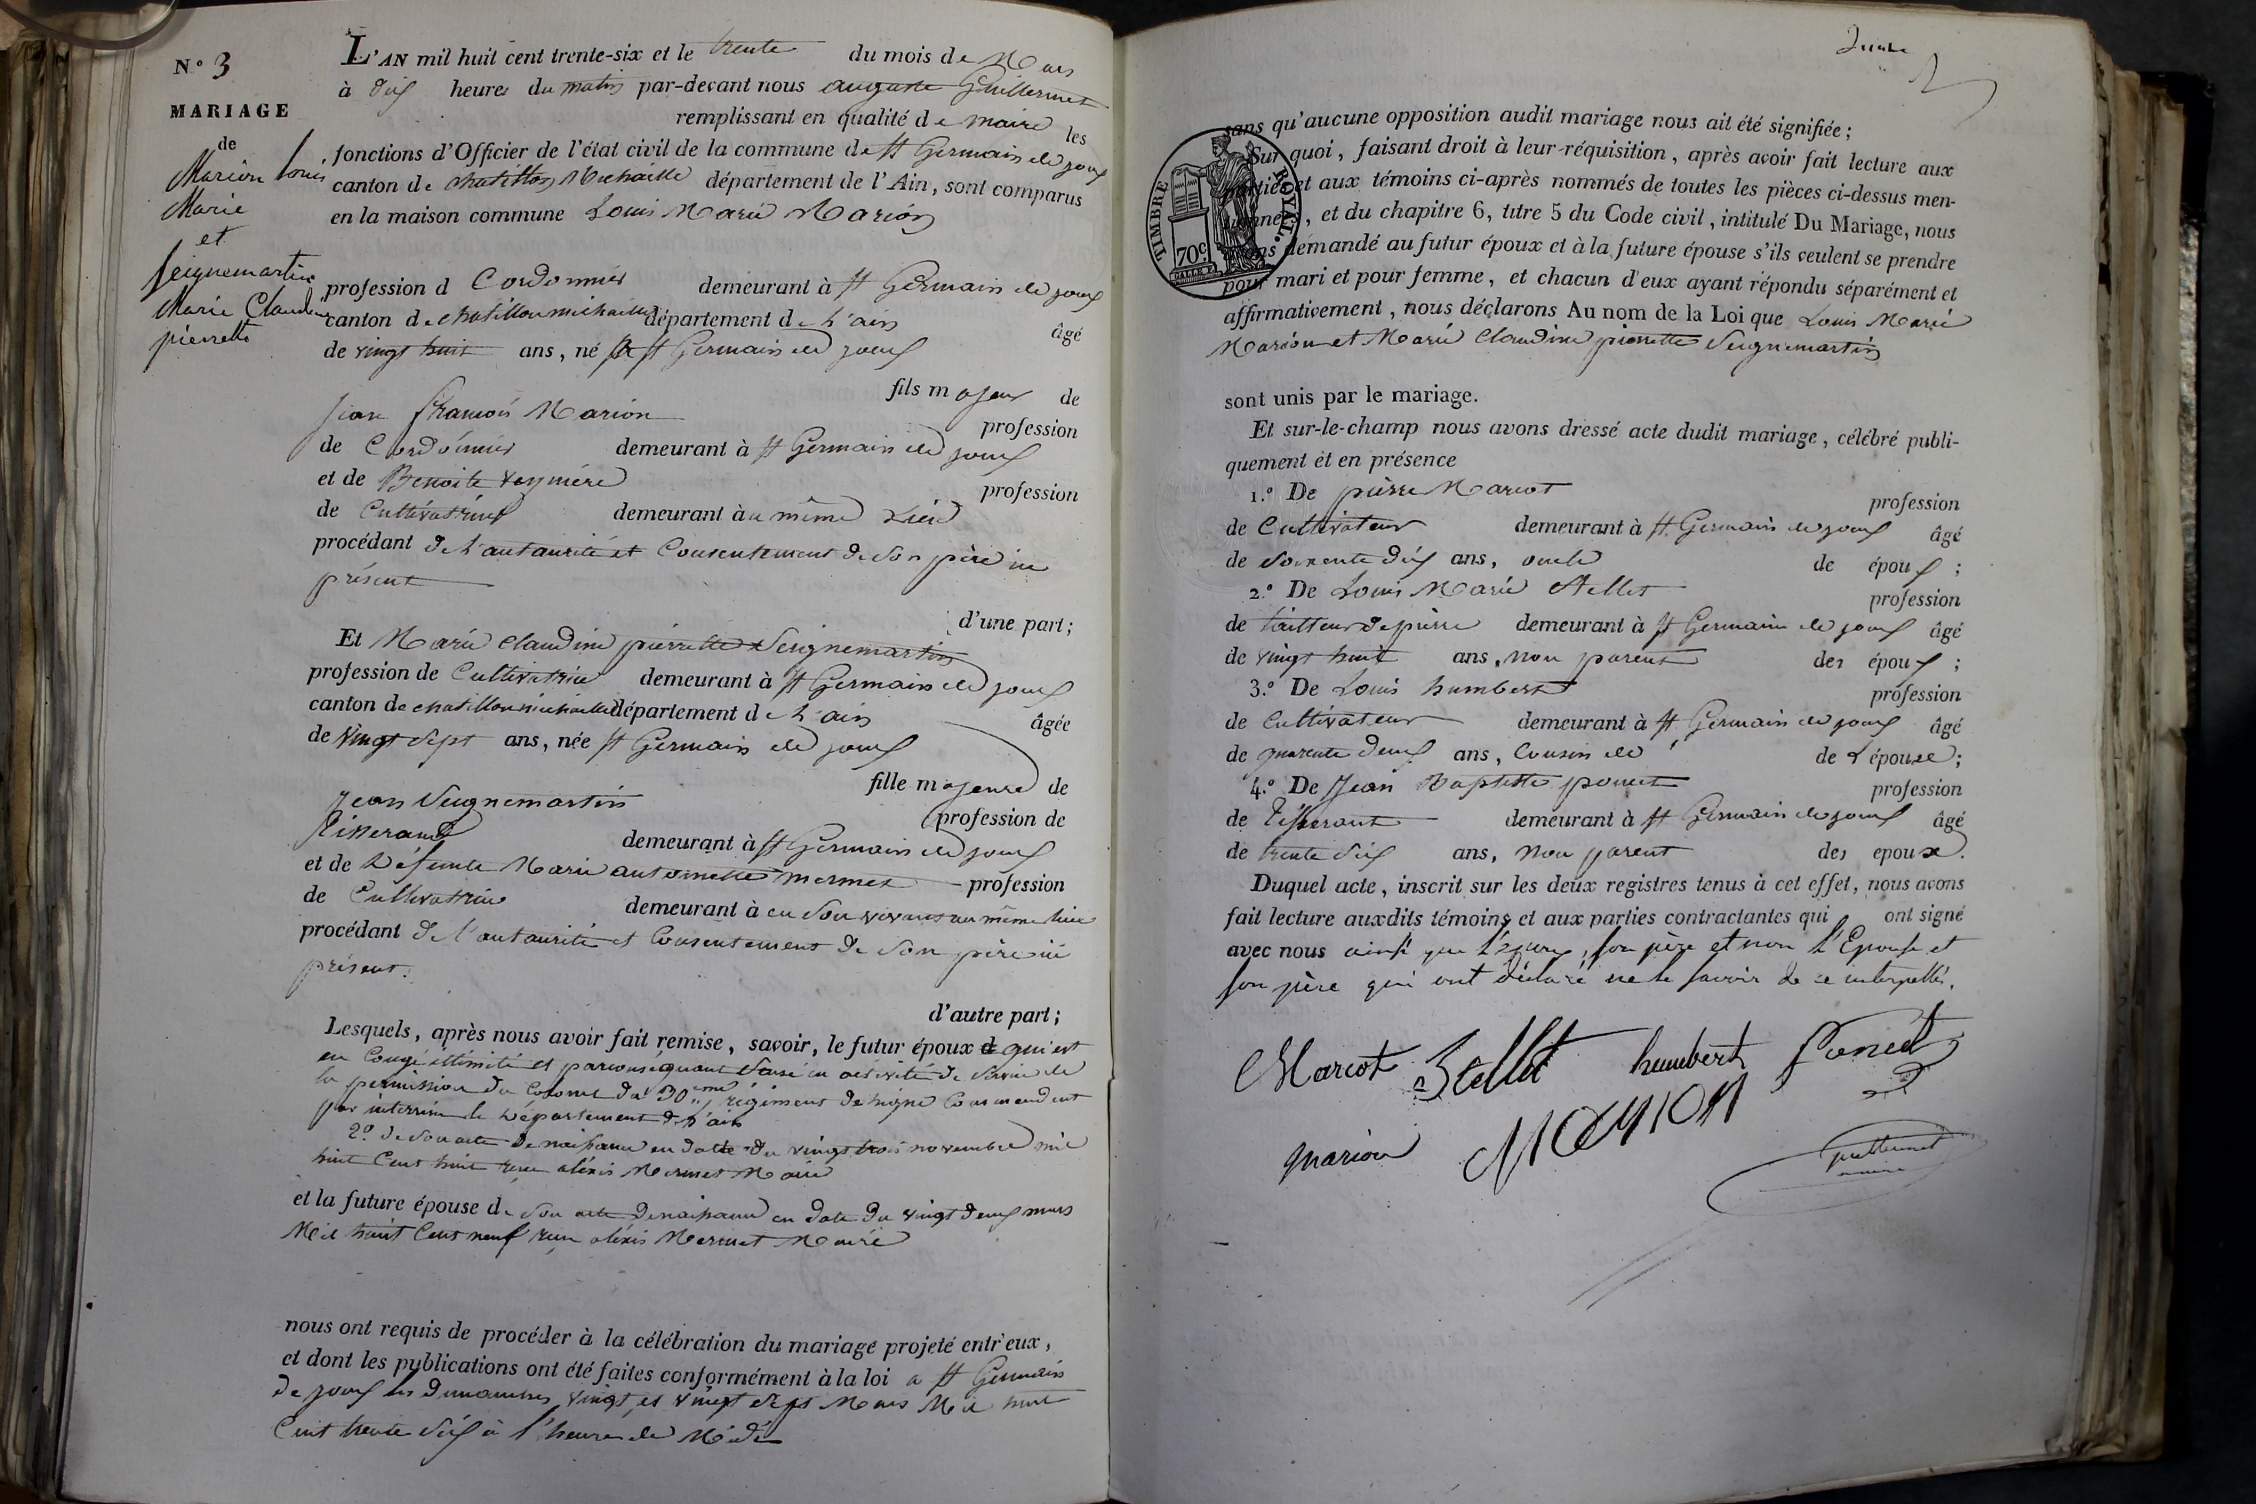 N° 3
MARIAGE
de
Marion Louis
Marie
et
Seignemartin
Marie Claudine
pierrette
L'AN mil huit cent trente-six et le trente du mois de Mars
à dix heures du matin par-devant nous auguste Guillermet
remplissant en qualité de maire les
fonctions d'Officier de l'état civil de la commune de St Germain de joux
canton de chatillon Michaille département de l'Ain, sont comparus
en la maison commune Louis Marie Marion
profession d Cordonnier demeurant à St Germain de joux
canton de chatillon michaille département de L'ain âgé
de vingt huit ans, né St Germain de joux
fils majeur de
Jean François Marion profession
de Cordonnier demeurant à St Germain de joux
et de Benoite profession
de Cultivatrice demeurant au même Lieu
procédant de L'autaurité et Consentement de son père ici
présent
d'une part;
Et Marie claudine pierrette Seignemartin
profession de Cultivatrice demeurant à St Germain de joux
canton de chatillon michaille département de L'ain âgée
de vingt sept ans, née St Germain de joux
fille majeure de
Jean Seignemartin profession de
Tisserand demeurant à St Germain de joux
et de Défunte Marie antoinette mermet profession
de Cultivatrice demeurant à en son vivant au même lieu
procédant de l'autaurité et Consentement de son père ici
présent.
d'autre part;
Lesquels, après nous avoir fait remise, savoir, le futur époux d qui est
en Congé et par conséquent en activité de service de
la permission du Colonel du régiment de ligne Commandant
par interrim le Département de L'ain
2° de son acte de naissance en date du vingt trois novembre mil
huit Cent huit reçu aléxis Mermet Maire
et la future épouse de son acte de naissance en date du vingt deux mars
Mil huit Cent neuf reçu aléxis Mermet Maire
nous ont requis de procéder à la célébration du mariage projeté entr'eux,
et dont les publications ont été faites conformément à la loi a St Germain
de joux les dimanches vingt et vingt sept Mars Mil huit
Cent trente six à l'heure de Midi
TIMBRE ROYAL
70c.
sans qu'aucune opposition audit mariage nous ait été signifiée;
Sur quoi, faisant droit à leur réquisition, après avoir fait lecture aux
parties et aux témoins ci-après nommés de toutes les pièces ci-dessus men-
tionnées, et du chapitre 6, titre 5 du Code civil, intitulé Du Mariage, nous
avons demandé au futur époux et à la future épouse s'ils veulent se prendre
pour mari et pour femme, et chacun d'eux ayant répondu séparément et
affirmativement, nous déclarons Au nom de la Loi que Louis Marie
Marion et Marie Claudine pierrette Seignemartin
sont unis par le mariage.
Et sur-le-champ nous avons dressé acte dudit mariage, célébré publi-
quement et en présence
1.° De pierre Marcot profession
de Cultivateur demeurant à St Germain de joux âgé
de soixente dix ans, oncle de époux;
2.° De Louis Marie profession
de tailleur de pierre demeurant à St Germain de joux âgé
de vingt huit ans, non parent des époux;
3.° De Louis humbert profession
de Cultivateur demeurant à St Germain de joux âgé
de quarente deux ans, Cousin de de L'épouse;
4.° De Jean Baptiste poncet profession
de Tisserant demeurant à St Germain de joux âgé
de trente six ans, non parent des epoux.
Duquel acte, inscrit sur les deux registres tenus à cet effet, nous avons
fait lecture auxdits témoins et aux parties contractantes qui ont signé
avec nous ainsi que l'Epoux, son père et non l'Epouse et
son père qui ont déclaré ne le savoir de ce interpellés.
Marcot humbert Poncet
marion MARION
guillermet
maire